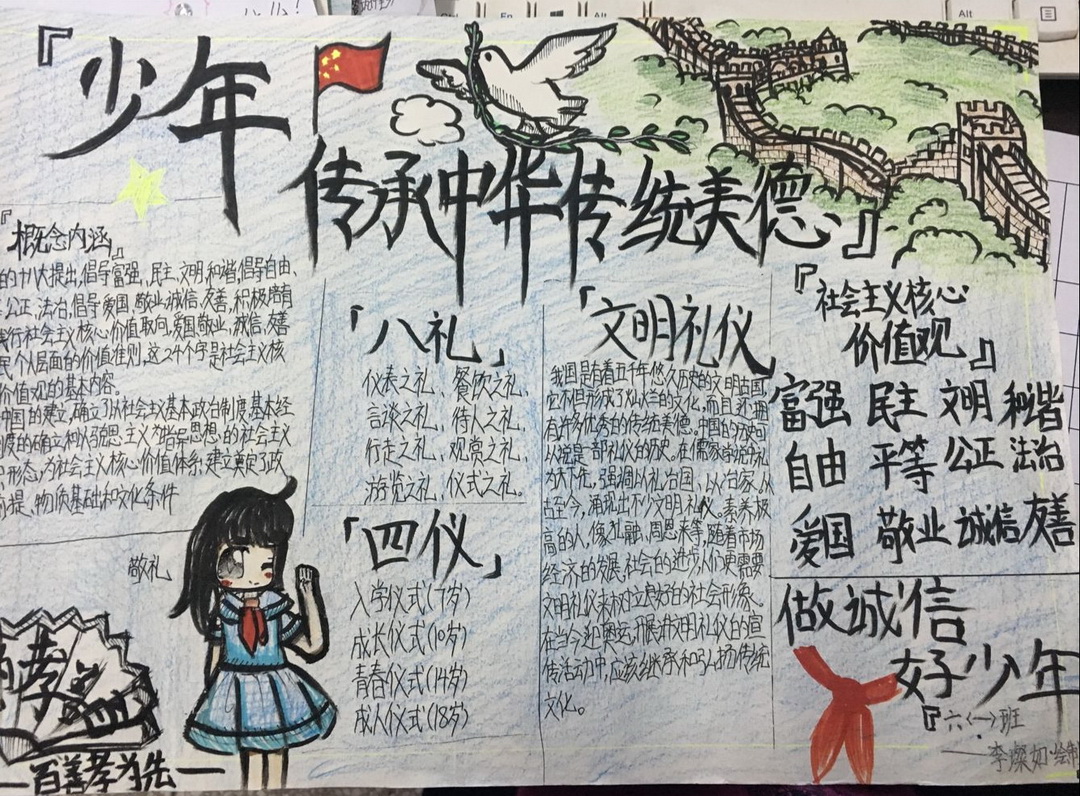 『少年
传承中华传统美德』
『概念内涵』
的十八大提出,倡导富强、民主、文明、和谐,倡导自由、
公正、法治,倡导爱国、敬业、诚信、友善,积极培育
践行社会主义核心价值取向,爱国、敬业、诚信、友善
民个层面的价值准则,这24个字是社会主义核
价值观的基本内容。
中国的建立,确立了以社会主义基本政治制度,基本经
制度的确立和以马克思主义为指导思想的社会主义
形态,为社会主义核心价值体系,建立奠定了政
前提、物质基础和文化条件
敬礼
孝
百善孝为先
「八礼」
仪表之礼、餐饮之礼、
言谈之礼、待人之礼、
行走之礼、观赏之礼、
游览之礼、仪式之礼。
「四仪」
入学仪式(7岁)
成长仪式(10岁)
青春仪式(14岁)
成人仪式(18岁)
「文明礼仪」
我国是有着五千年悠久历史的文明古国,
它不但形成了灿烂的文化,而且还拥
有许多优秀的传统美德。中国的历史可
以说是一部礼仪的历史。在儒家学说中礼
为天下先,强调以礼治国、以礼治家,从
古至今,涌现出不少文明礼仪、素养极
高的人,像孔融、周恩来等,随着市场
经济的发展,社会的进步,人们更需要
文明礼仪来树立良好的社会形象。
在当今迎奥运,开展讲文明礼仪的宣
传活动中,应该继承和弘扬传统
文化。
『社会主义核心
价值观』
富强 民主 文明 和谐
自由 平等 公正 法治
爱国 敬业 诚信 友善
做诚信
好少年
『六〈一〉班
——李璨如·绘制
Alt